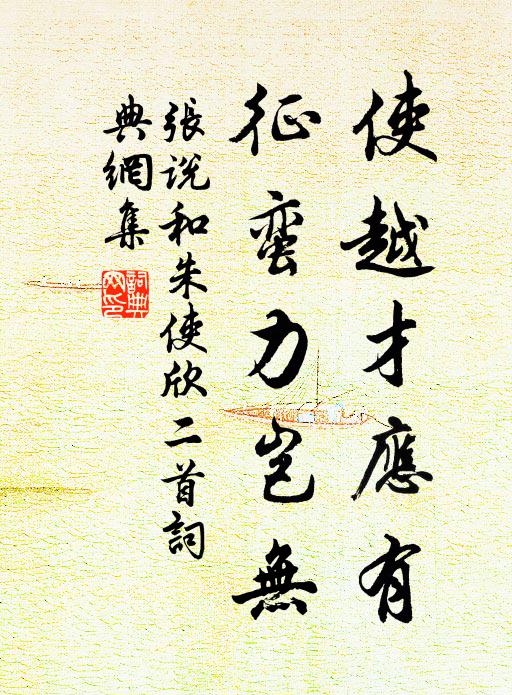 使越才應有
征蛮力岂無
張說和朱使欣二首詞
典網集
詞典网印